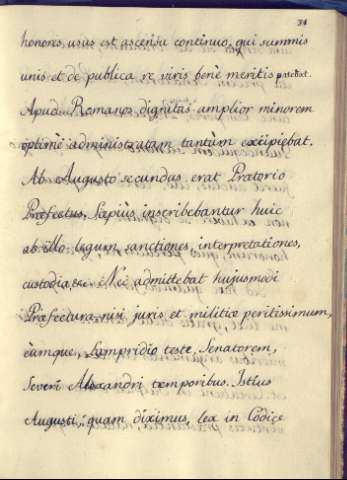 34
honores usus est ascensu continuo, qui summis
unis et de publica re viris benè meritis patebat.
Apud Romanos dignitas amplior minorem
optimè administratam tantùm excipiebat.
Ab Augusto secundus erat Pratorio
Præfectus, Sæpiùs inscribebantur huic
ab illo legum sanctiones, interpretationes,
custodia, Nec admittebat hujusmodi
Præfectura nisi juris et militiæ peritissimum,
eàmque, Lampridio teste, Senatorem,
Severi Alexandri temporibus. Istius
Augusti, quam diximus, lex in Codice